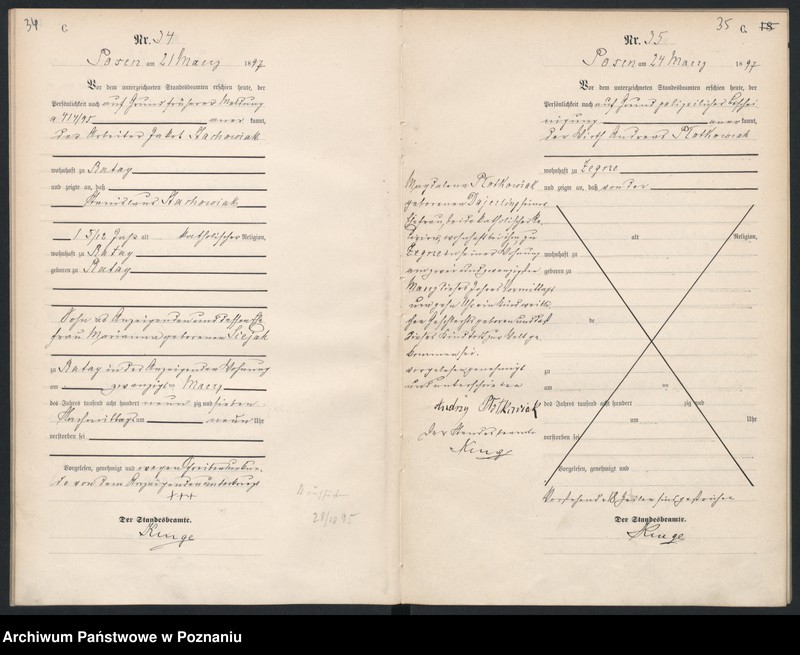 34
C
Nr. 34
Posen am 21 März 1897
Vor dem unterzeichneten Standesbeamten erschien heute, der
Persönlichkeit nach auf Grund früherer Meldung
a 414/95 aner kannt,
der Arbeiter Jakob Stachowiak
wohnhaft zu Ratay
und zeigte an, daß
Stanislaus Stachowiak
1 5/12 Jahr alt katholischer Religion,
wohnhaft zu Ratay
geboren zu Ratay
Sohn des Anzeigenden und dessen Ehe
frau Marianna geborenen
zu Ratay in des Anzeigenden Wohnung
am zwanzigsten März
des Jahres tausend acht hundert neun zig und sieben
Nachmittags um neun Uhr
verstorben sei
Vorgelesen, genehmigt und wegen Schreibensunkun-
de von dem Anzeigenden unterkreuzt
+++
Der Standesbeamte.
35
C.
18
Nr. 35
Posen am 24 März 1897
Vor dem unterzeichneten Standesbeamten erschien heute, der
Persönlichkeit nach auf Grund polizeilicher Beschei
nigung aner kannt,
der Wirth Andreas Plotkowiak
wohnhaft zu Zegrze
und zeigte an, daß von der
Magdalena Plotkowiak
geborenen seiner
Ehefrau, beide katholischer Re
ligion, wohnhaft bei ihm zu
Zegrze in seiner Wohnung
am zwei und zwanzigsten
März dieses Jahres Vormittags
um zehn Uhr ein Kind weibli-
chen Geschlechts geboren und daß
dieses Kind todt zur Welt ge
kommen sei.
Vorgelesen genehmigt
und unterschrieben
Der Standesbeamte
alt Religion,
wohnhaft zu
geboren zu
de
zu
am
des Jahres tausend acht hundert zig und
um Uhr
verstorben sei
Vorgelesen, genehmigt und
Vorstehende Zeilen sind gestrichen
Der Standesbeamte.
Archiwum Państwowe w Poznaniu